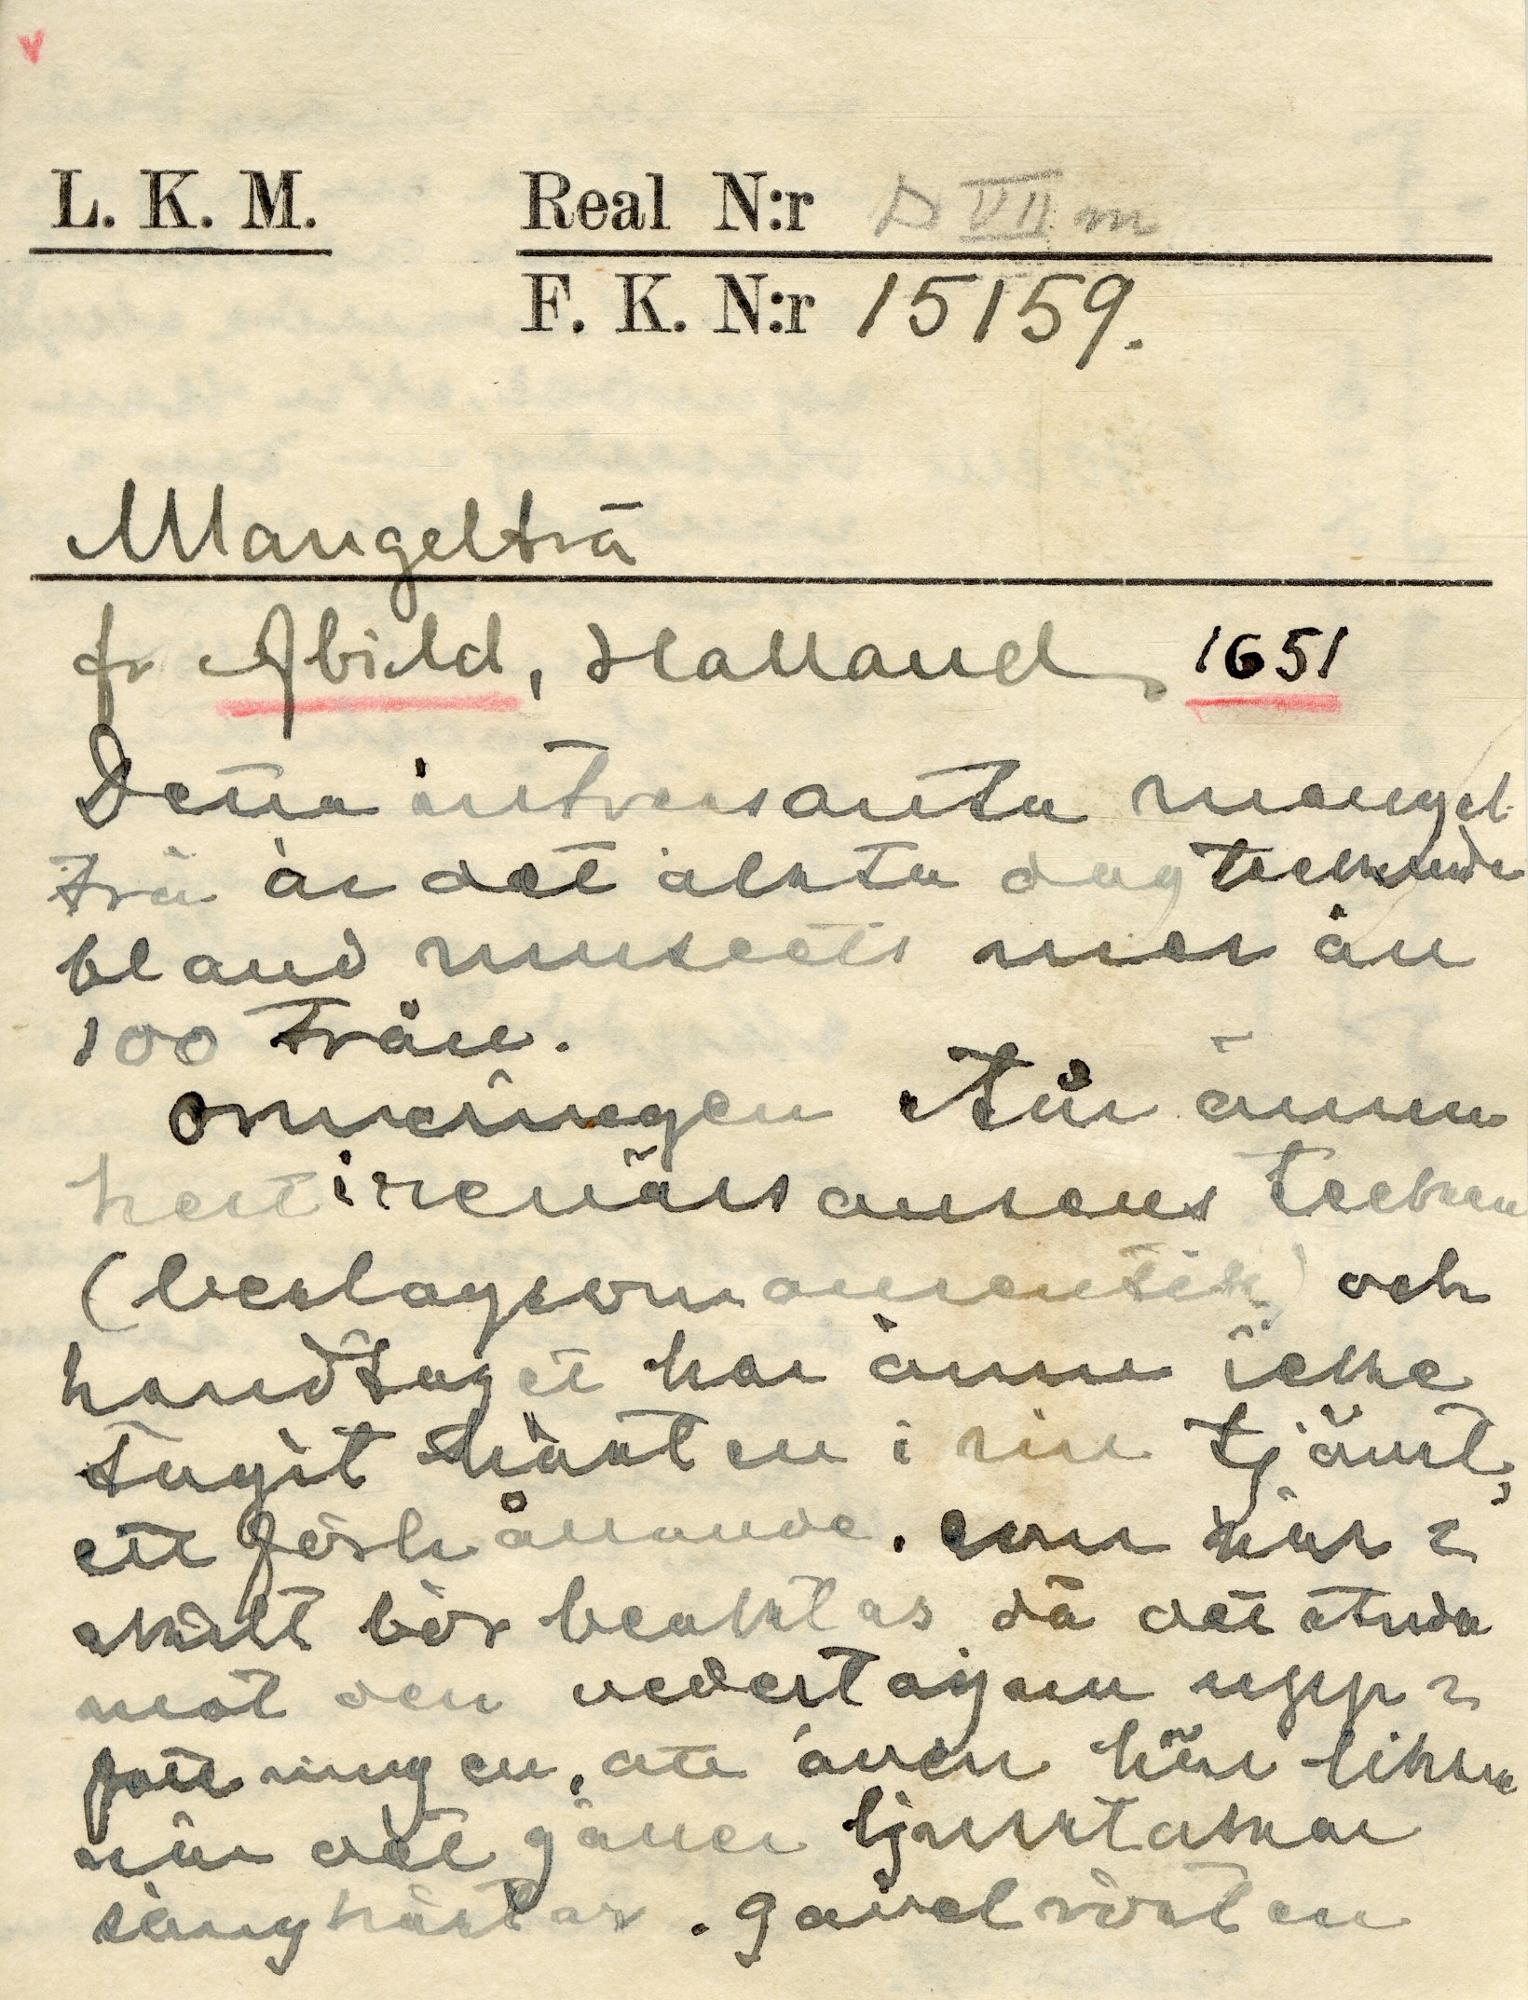 L. K. M.
Real N:r D VII m
F. K. N:r 15159.
Mangelträ
fr Abild, Halland 1651
Detta intressanta mangel
trä är det älsta dagtecknade
bland museets mer än
100 trän.
orneringen står ännu
helt i renässansens tecken
(beslagsornamentik) och
handtaget har ännu icke
tagit hästen i sin tjänst,
ett förhållande, som sär=
skilt bör beaktas då det strida
mot den vedertagna upp=
fattningen, att även här likson
när det gäller ljusstakar
sänghästar, gavelrösten